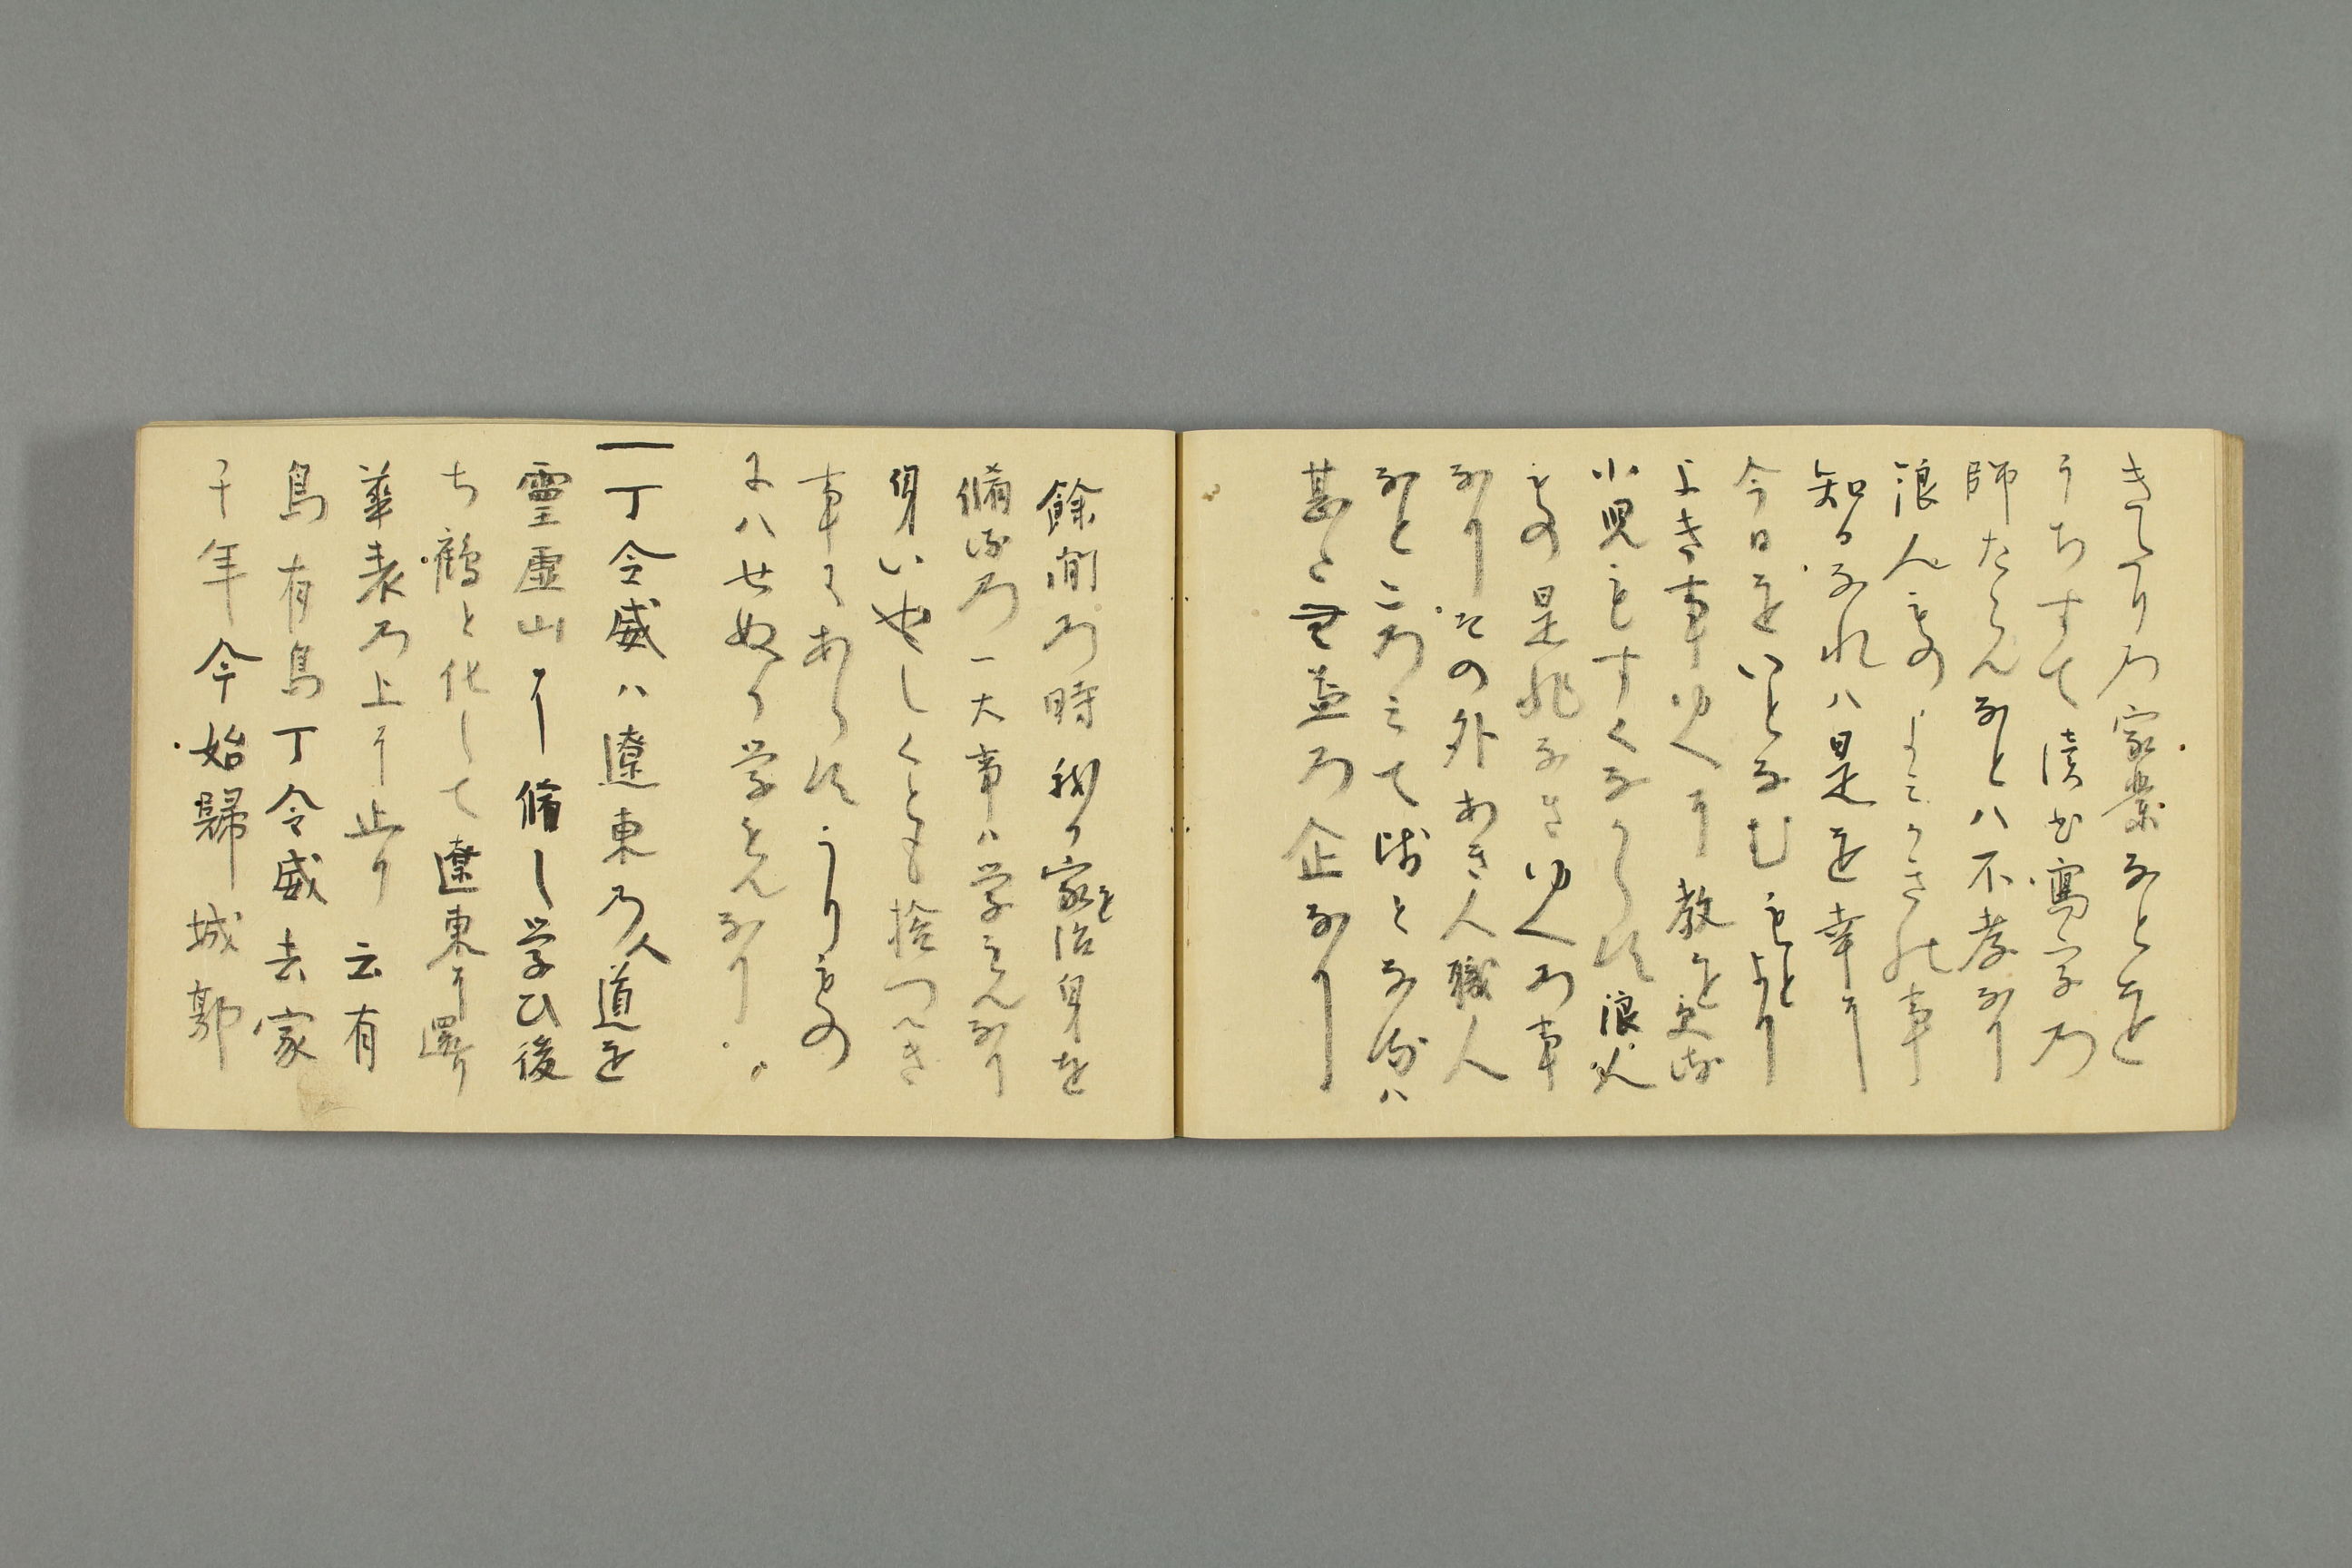 きたり乃家業なとを
うちすて讀書寫字乃
師たらんなとハ不孝なり
浪人ものよんところなき事
知るなれハ是を幸に
今日をいとなむもとより
よき事ゆへに教を受る
小児もすくなからす浪人
もの是非なきゆへ乃事
なりその外あき人職人
なと二乃町て皆となるハ
甚た無益乃企なり
餘間乃時我か家を治身を
脩る乃一大事ハ学もんなり
身いやしくとも捨つへき
事にあらすうりもの
にハせぬか学もんなり
一丁令威ハ遼東乃人道を
靈虚山に脩し学ひ後
ち鶴と化して遼東に還り
華表乃上に止り 云有
鳥有鳥丁令威去家
千年今始歸城郭